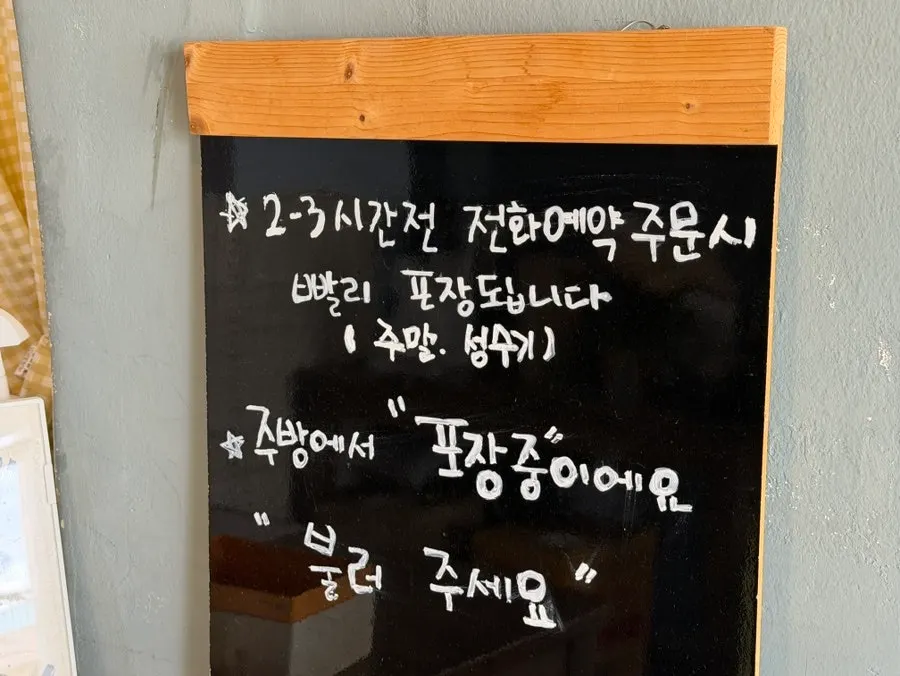 ☆ 2-3시간전 전화예약 주문시
빨리 포장도됩니다
( 주말. 성수기)
☆ 주방에서 "포장중"이에요
"불러 주세요"